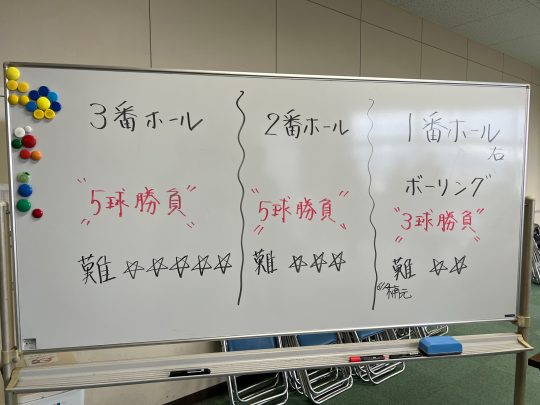 3番ホール
〃5球勝負〃
難 ☆☆☆☆☆
2番ホール
〃5球勝負〃
難 ☆☆☆
1番ホール
右
ボーリング
〃3球勝負〃
難 ☆☆